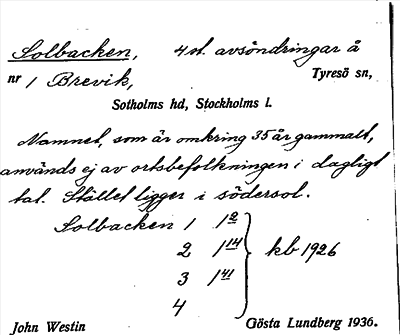 Solbacken, 4 st. avsöndringar å
nr 1 Brevik, Tyresö sn,
Sotholms hd, Stockholms l.
Namnet, som är omkring 35 år gammalt,
användes ej av ortsbefolkningen i dagligt
tal. Stället ligger i södersol.
Solbacken 1 1⁹
2 1¹⁴ kb 1926
3 1⁴¹
4
John Westin Gösta Lundberg 1936.